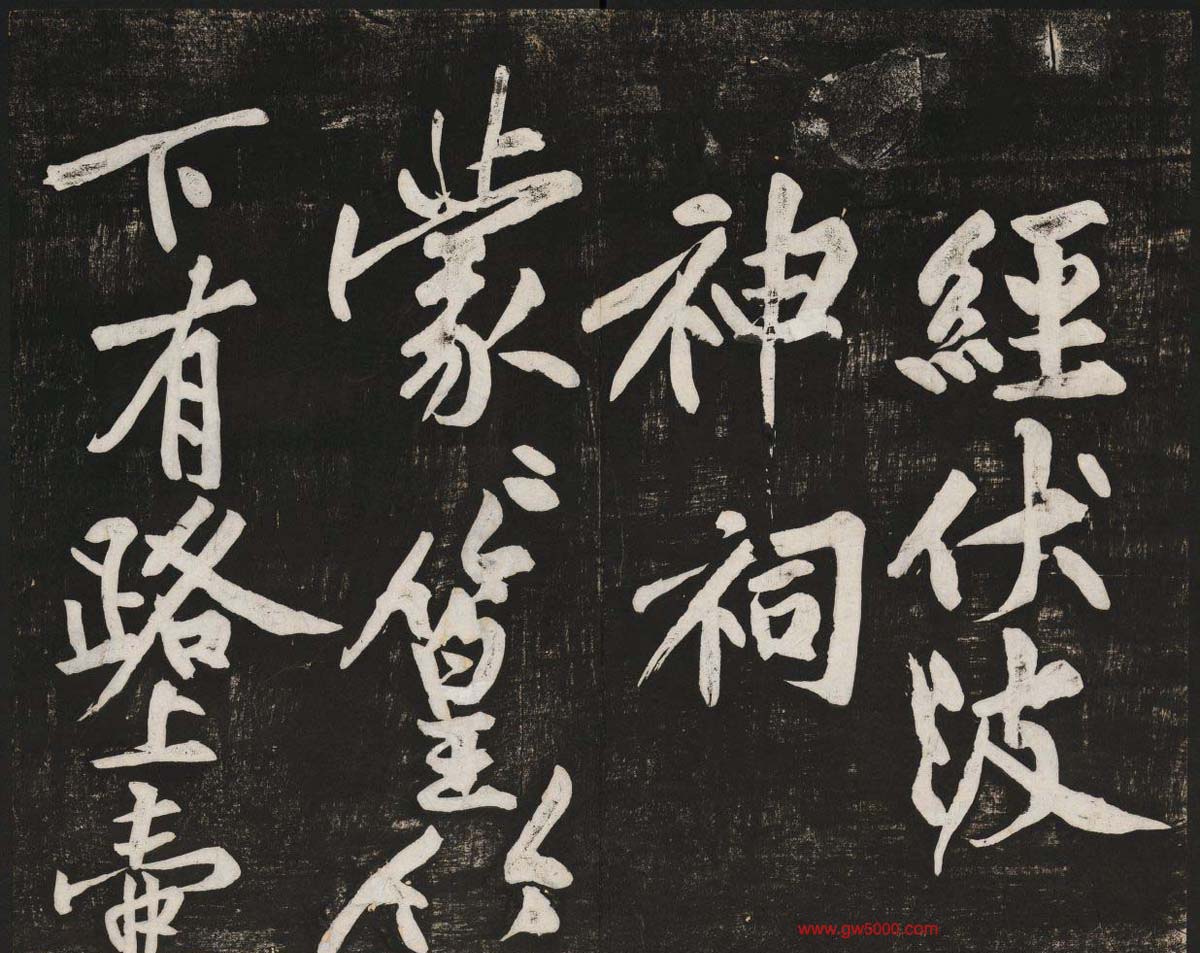 經伏波
神祠
蒙〻篁竹
下有路上壺
www.gw5000.com